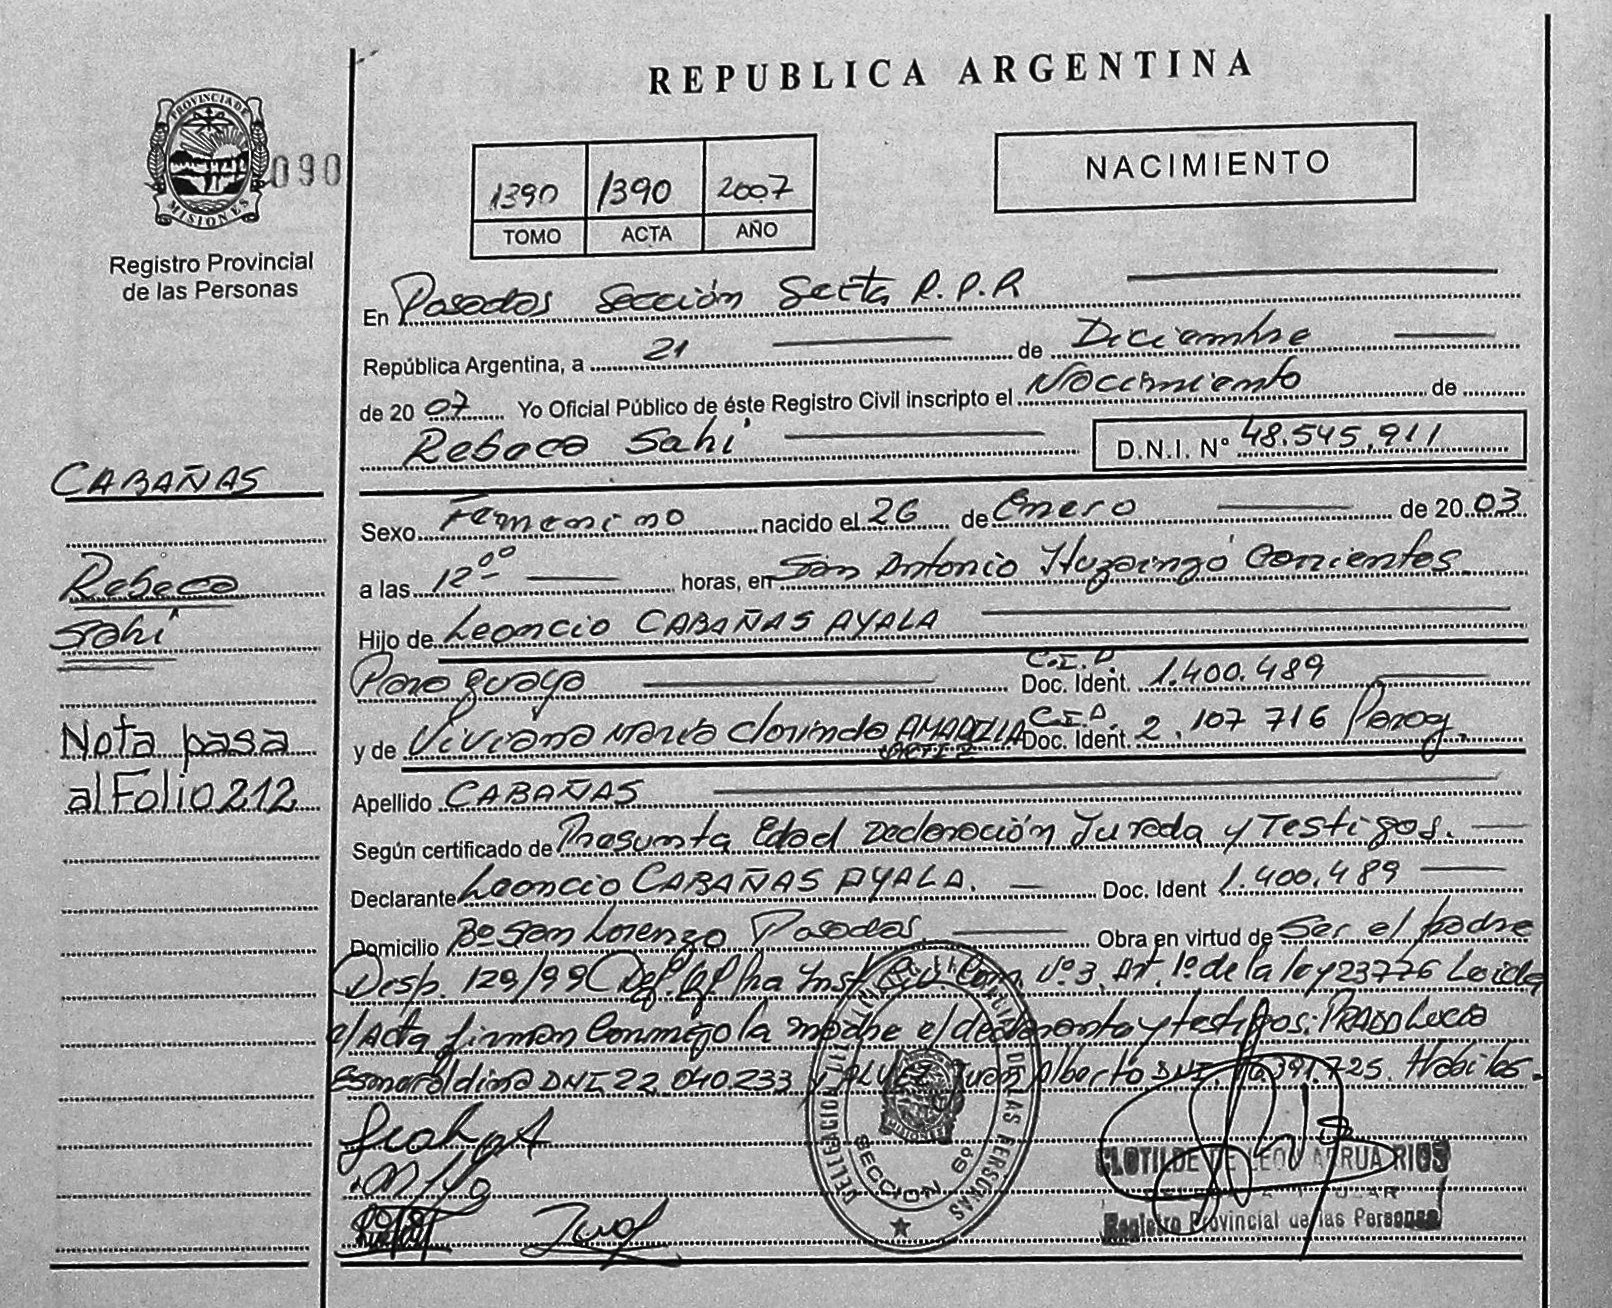 REPUBLICA ARGENTINA
PROVINCIA DE
MISIONES
090
Registro Provincial
de las Personas
1390 1390 2007
TOMO ACTA AÑO
NACIMIENTO
En Posadas Sección Sexta R.P.R
República Argentina, a 21 de Diciembre
de 20 07 Yo Oficial Público de éste Registro Civil inscripto el Nacimiento de
Rebeca Sahi D.N.I. Nº 48.545.911
CABAÑAS
Rebeca
Sahi
Nota pasa
al Folio 212
Sexo Femenino nacido el 26 de Enero de 20 03
a las 12 horas, en San Antonio Ituzaingó Corrientes
Hijo de Leoncio CABAÑAS AYALA
Paraguaya C.I.P. Doc. Ident. 1.400.489
y de Viviana María Clorinda AMARILLA ORTIZ C.I.P. Doc. Ident. 2.107 716 Parag.
Apellido CABAÑAS
Según certificado de Presunta Edad Declaración Jurada y Testigos.
Declarante Leoncio CABAÑAS AYALA. Doc. Ident 1.400.489
Domicilio Bº San Lorenzo Posadas Obra en virtud de Ser el padre
Desp. 129/99 Nº 3. Art. 1º de la ley 23776 Leida
el Acta firman conmigo la madre el declarante y testigos: PRADO Lucia
Esmeraldina DNI 22.040.233 y Juan Alberto DNI. 391.725. Habiles.
DELEGACION DE LAS PERSONAS
SECCION 6º
CLOTILDE DE LEON ARRUA RIOS
Registro Provincial de las Personas